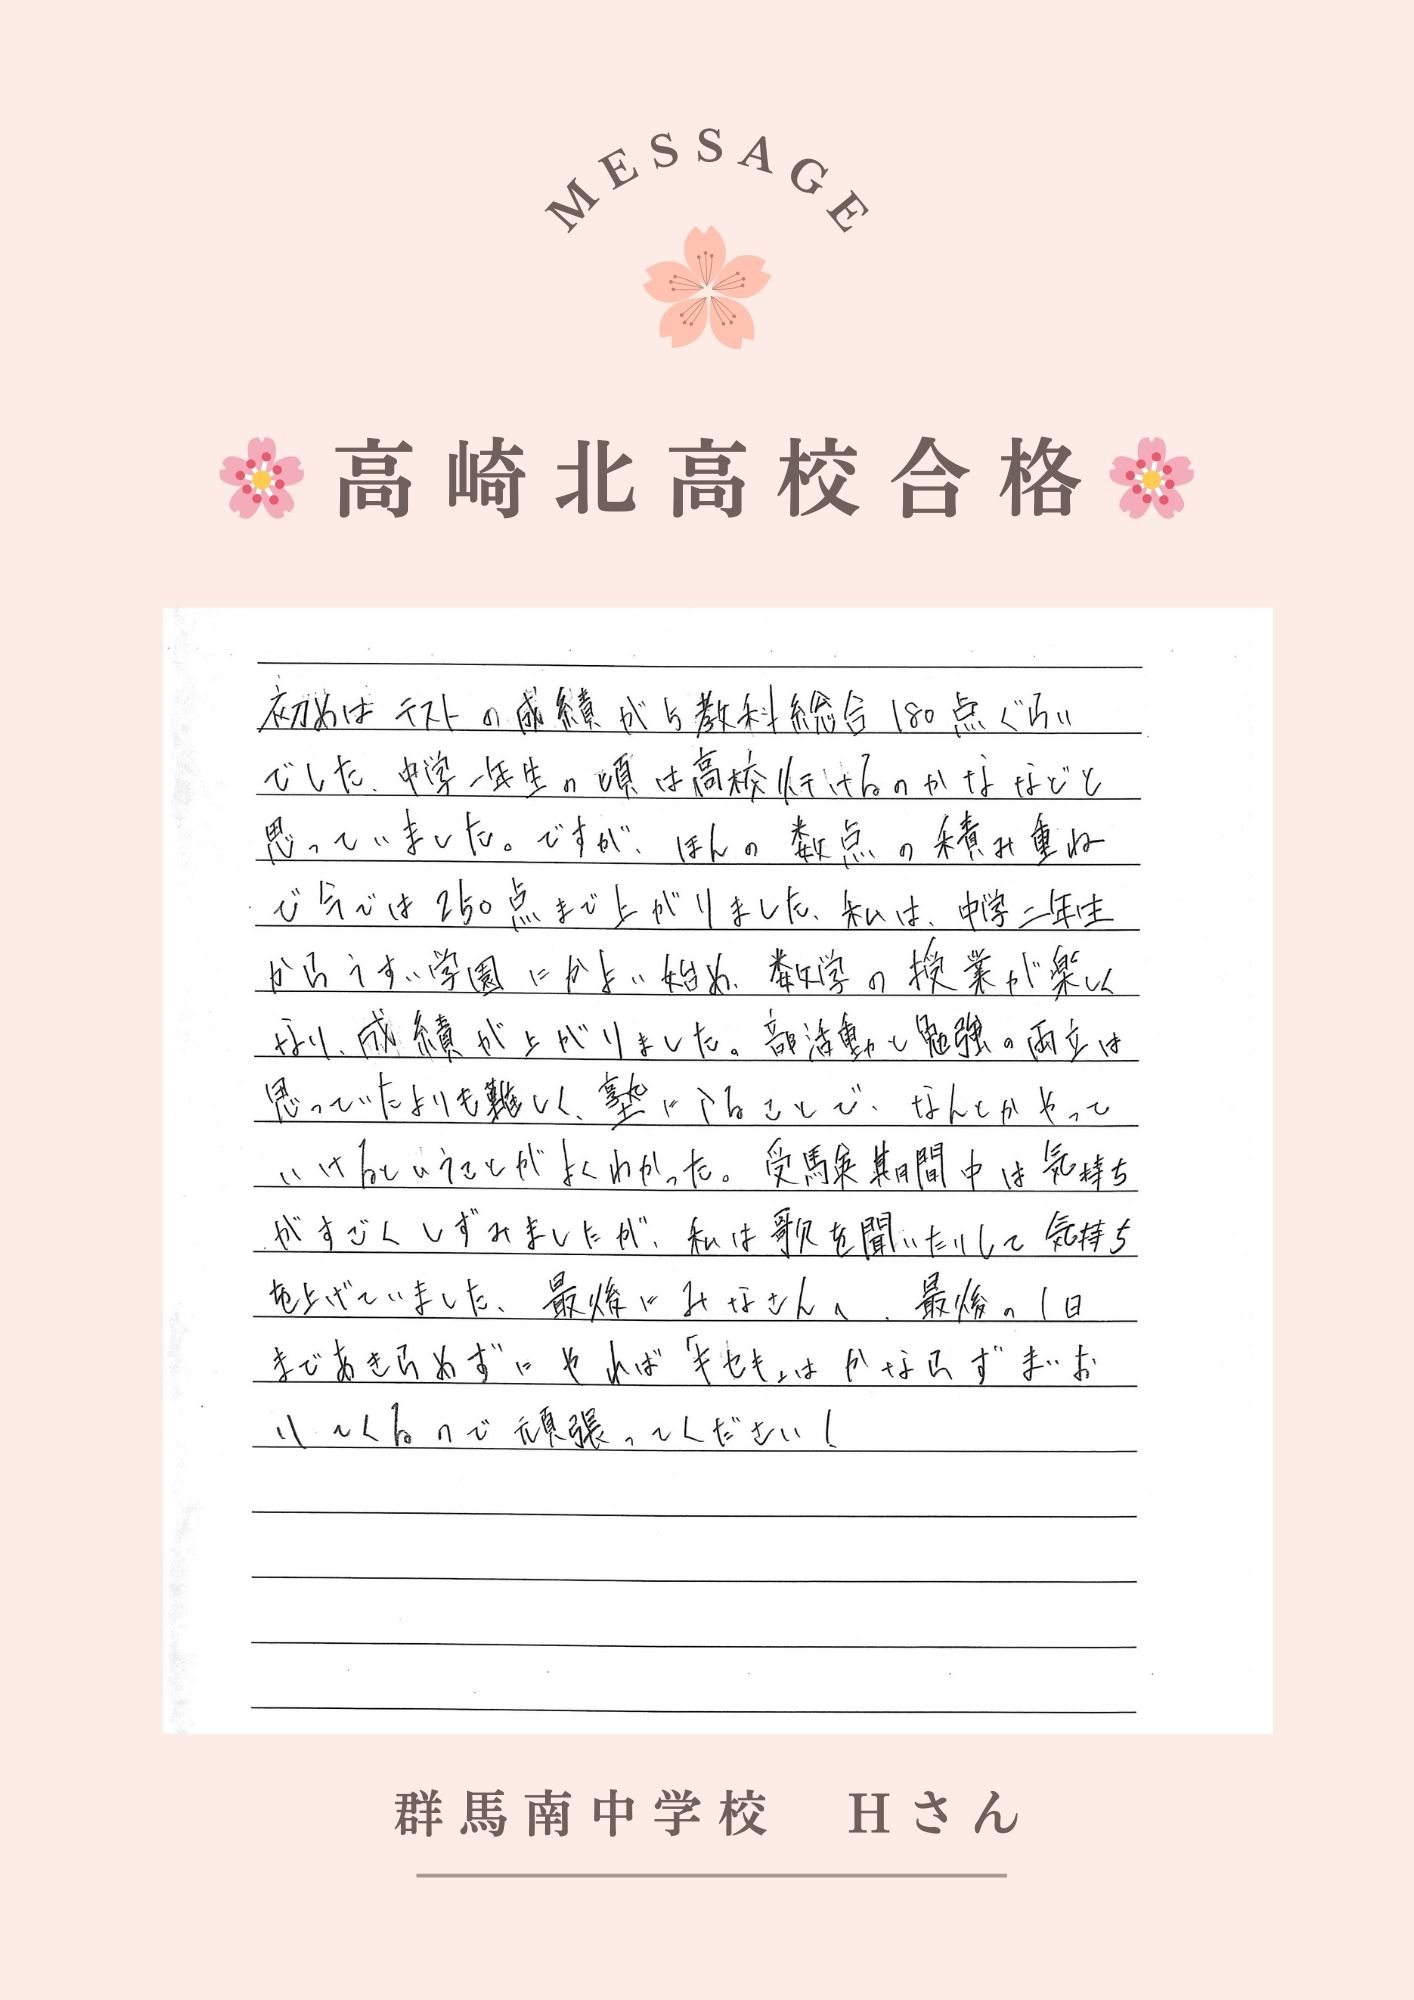 MESSAGE
高崎北高校合格
初めはテストの成績が5教科総合180点ぐらい
でした、中学一年生の頃は高校行けるのかななどと
思っていました。ですが、ほんの数点の積み重ね
で今では250点まで上がりました、私は、中学二年生
からうすい学園にかよい始め、数学の授業が楽しく
なり、成績が上がりました。部活動と勉強の両立は
思っていたよりも難しく、塾に入ることで、なんとかやって
いけるということがよくわかった。受験期間中は気持ち
がすごくしずみましたが、私は歌を聞いたりして気持ち
を上げていました、最後にみなさんへ、最後の1日
まであきらめずにやれば「キセキ」はかならずまいお
りてくるので頑張ってください!
群馬南中学校 Hさん